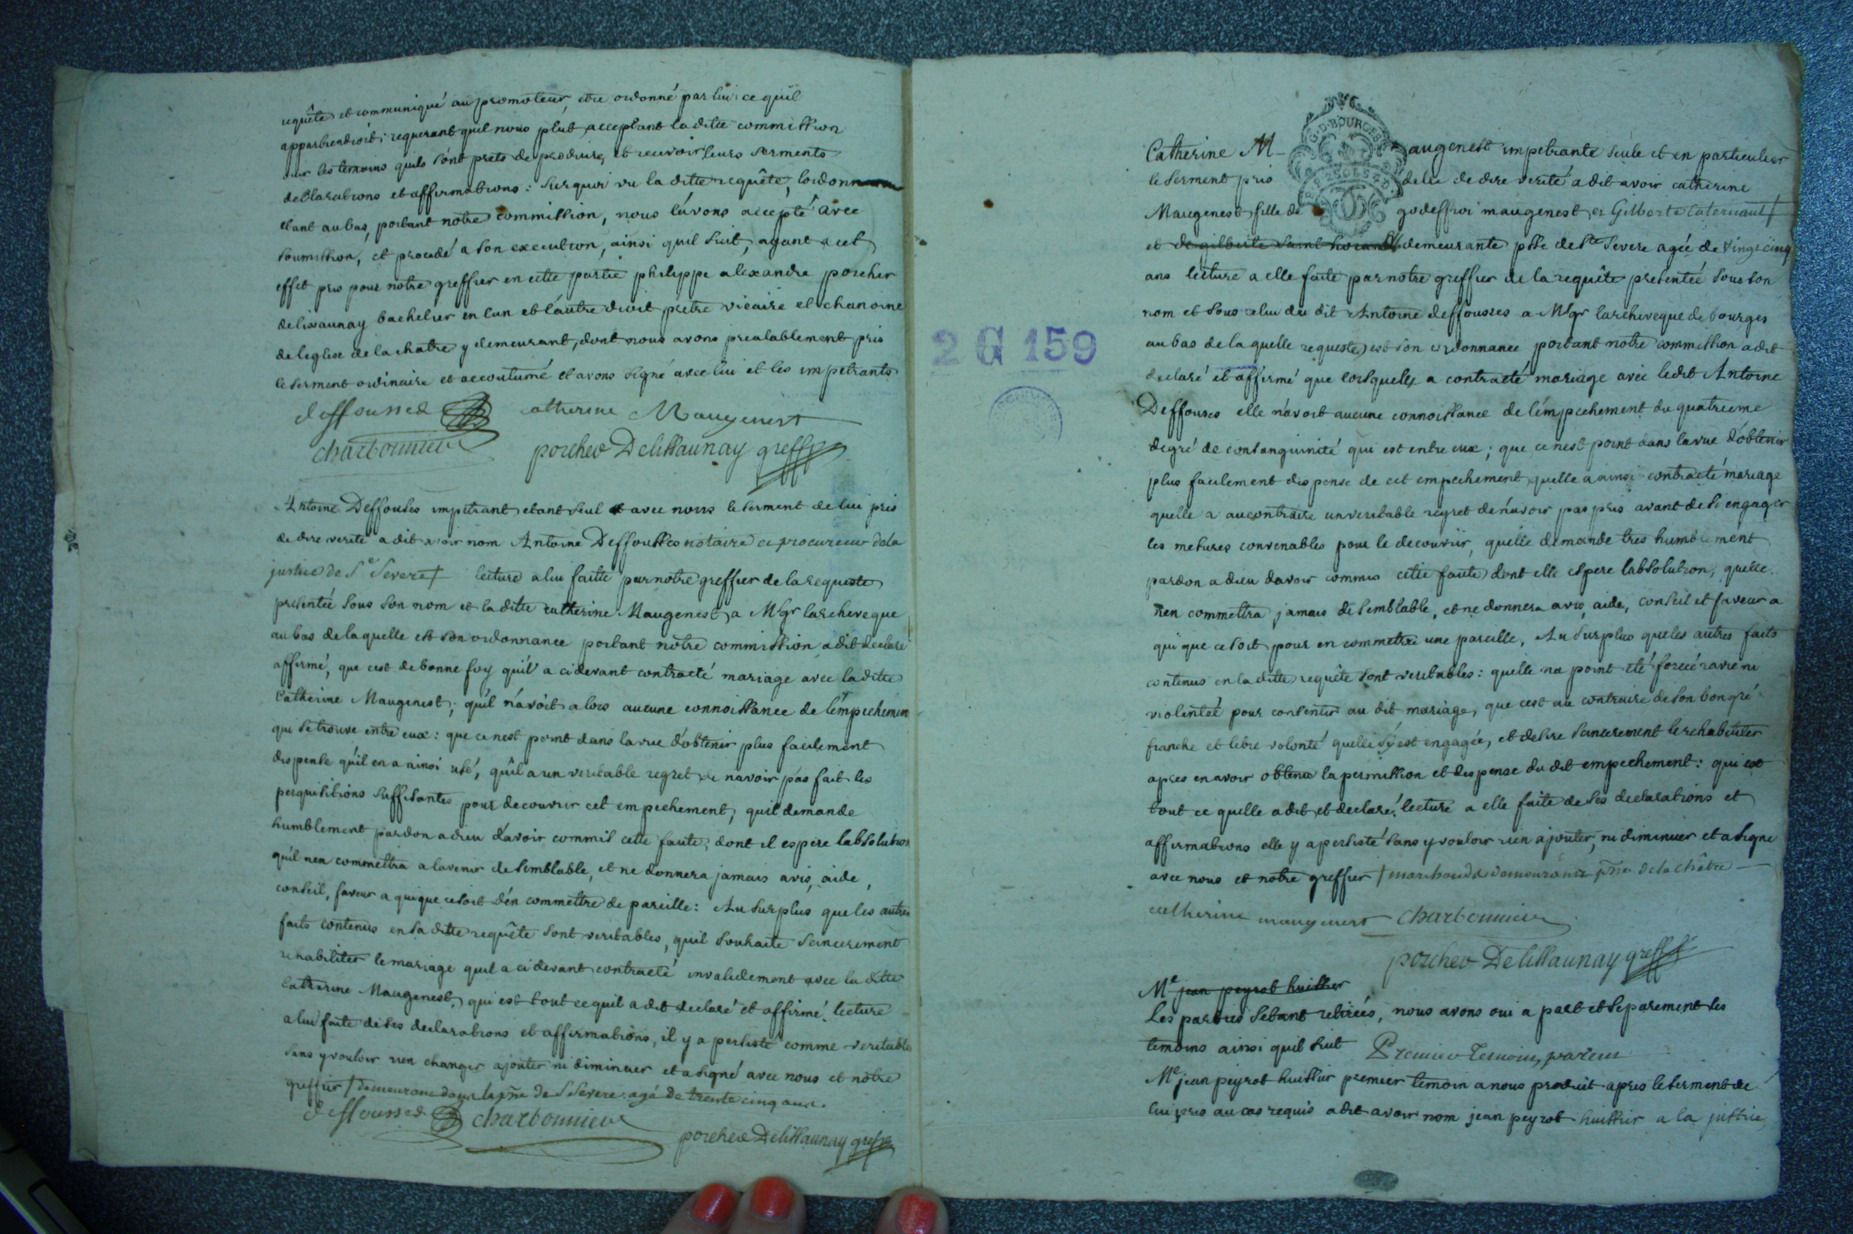 requête et communiqué au promoteur, etre ordonné par lui ce quil
appartiendroit; requerant quil nous plut acceptant la ditte commission
ouir les temoins quils sont prets de produire, et recevoir leurs serments
declarations et affirmations: surquoi vu la ditte requête, lordonnance
etant au bas, portant notre commission, nous l'avons accepté avec
soumission, et procedé a son execution, ainsi quil suit, ayant a cet
effet pris pour notre greffier en cette partie philippe alexandre porcher
delissaunay bachelier en l'un et l'autre droit prêtre vicaire et chanoine
de leglise de la chatre y demeurant, dont nous avons prealablement pris
le serment ordinaire et accoutumé et avons signé avec lui et les impetrants
deffousses catherine Maugenest
charbonnier porcher Delissaunay greff
Antoine Deffousses impetrant etant seul avec nous le serment de lui pris
de dire verité a dit avoir nom Antoine Deffousses notaire et procureur de la
justice de Ste Severe + lecture a lui faitte par notre greffier de la requeste
presentée sous son nom et la ditte catherine Maugenest, a Mgr larcheveque
au bas de laquelle est son ordonnance portant notre commission a dit declaré
affirmé, que c'est de bonne foy qu'il a cidevant contracté mariage avec la ditte
Catherine Maugenest; qu'il n'avoit alors aucune connoissance de l'empechement
qui se trouve entre eux: que ce n'est point dans la vue d'obtenir plus facilement
dispense qu'il en a ainsi usé, qu'il a un veritable regret de navoir pas fait les
perquisitions suffisantes pour decouvrir cet empechement, quil demande
humblement pardon a dieu d'avoir commis cette faute, dont il espere labsolution
qu'il n'en commettra a lavenir de semblable, et ne donnera jamais avis, aide,
conseil, faveur a quique ce soit d'en commettre de pareille: Au surplus que les autres
faits contenus en sa ditte requête sont veritables, quil souhaite sincerement
rehabiliter le mariage quil a cidevant contracté invalidement avec la ditte
Catherine Maugenest, qui est tout ce quil a dit declaré et affirmé. lecture
a lui faite de ses declarations et affirmations, il y a persisté comme veritables
sans y vouloir rien changer ajouter ni diminuer et a signé avec nous et notre
greffier + demeurant dans la psse de S Severe agé de trente cinq ans.
deffousses charbonnier
porcher Delissaunay greff
2 G 159
G. D. BOURGES
Catherine M augenest impetrante seule et en particulier
le serment pris delle de dire verité a dit avoir catherine
Maugenest fille de godeffroi maugenest et Gilberte
et de gilberte demeurante psse de Ste Severe agée de vingt cinq
ans lecture a elle faite par notre greffier de la requête presentée sous son
nom et sous celui du dit Antoine deffousses a Mgr larcheveque de bourges
au bas de la quelle requeste est son ordonnance portant notre commission a dit
declaré et affirmé que lorsquelle a contracté mariage avec ledit Antoine
Deffousses elle n'avoit aucune connoissance de l'empechement du quatrieme
degré de consanguinité qui est entre eux; que ce nest point dans la vue d'obtenir
plus facilement dispense de cet empechement quelle a ainsi contracté mariage
quelle a aucontraire un veritable regret de n'avoir pas pris avant de s'engager
les mesures convenables pour le decouvrir, quelle demande tres humblement
pardon a dieu davoir commis cette faute dont elle espere labsolution, quelle
n'en commettra jamais de semblable, et ne donnera avis, aide, conseil et faveur a
qui que ce soit pour en commettre une pareille, Au surplus que les autres faits
contenus en la ditte requête sont veritables: quelle na point eté forcée ravie ni
violentée pour consentir au dit mariage, que c'est au contraire de son bon gré
franche et libre volonté quelle s'y est engagée, et desire sincerement le rehabiliter
apres en avoir obtenu la permission et dispense du dit empechement: qui est
tout ce quelle a dit et declaré. lecture a elle faite de ses declarations et
affirmations elle y a persisté sans y vouloir rien ajouter, ni diminuer et a signé
avec nous et notre greffier + marchands demeurants psse de la châtre
catherine maugenest charbonnier
porcher Delissaunay greff
Me jean peyrot huissier
Les parties s'etant retirées, nous avons oui a part et separement les
temoins ainsi quil suit Premier Temoin, parent
Me jean peyrot huissier premier temoin a nous produit apres le serment de
lui pris au cas requis a dit avoir nom jean peyrot huissier a la justice